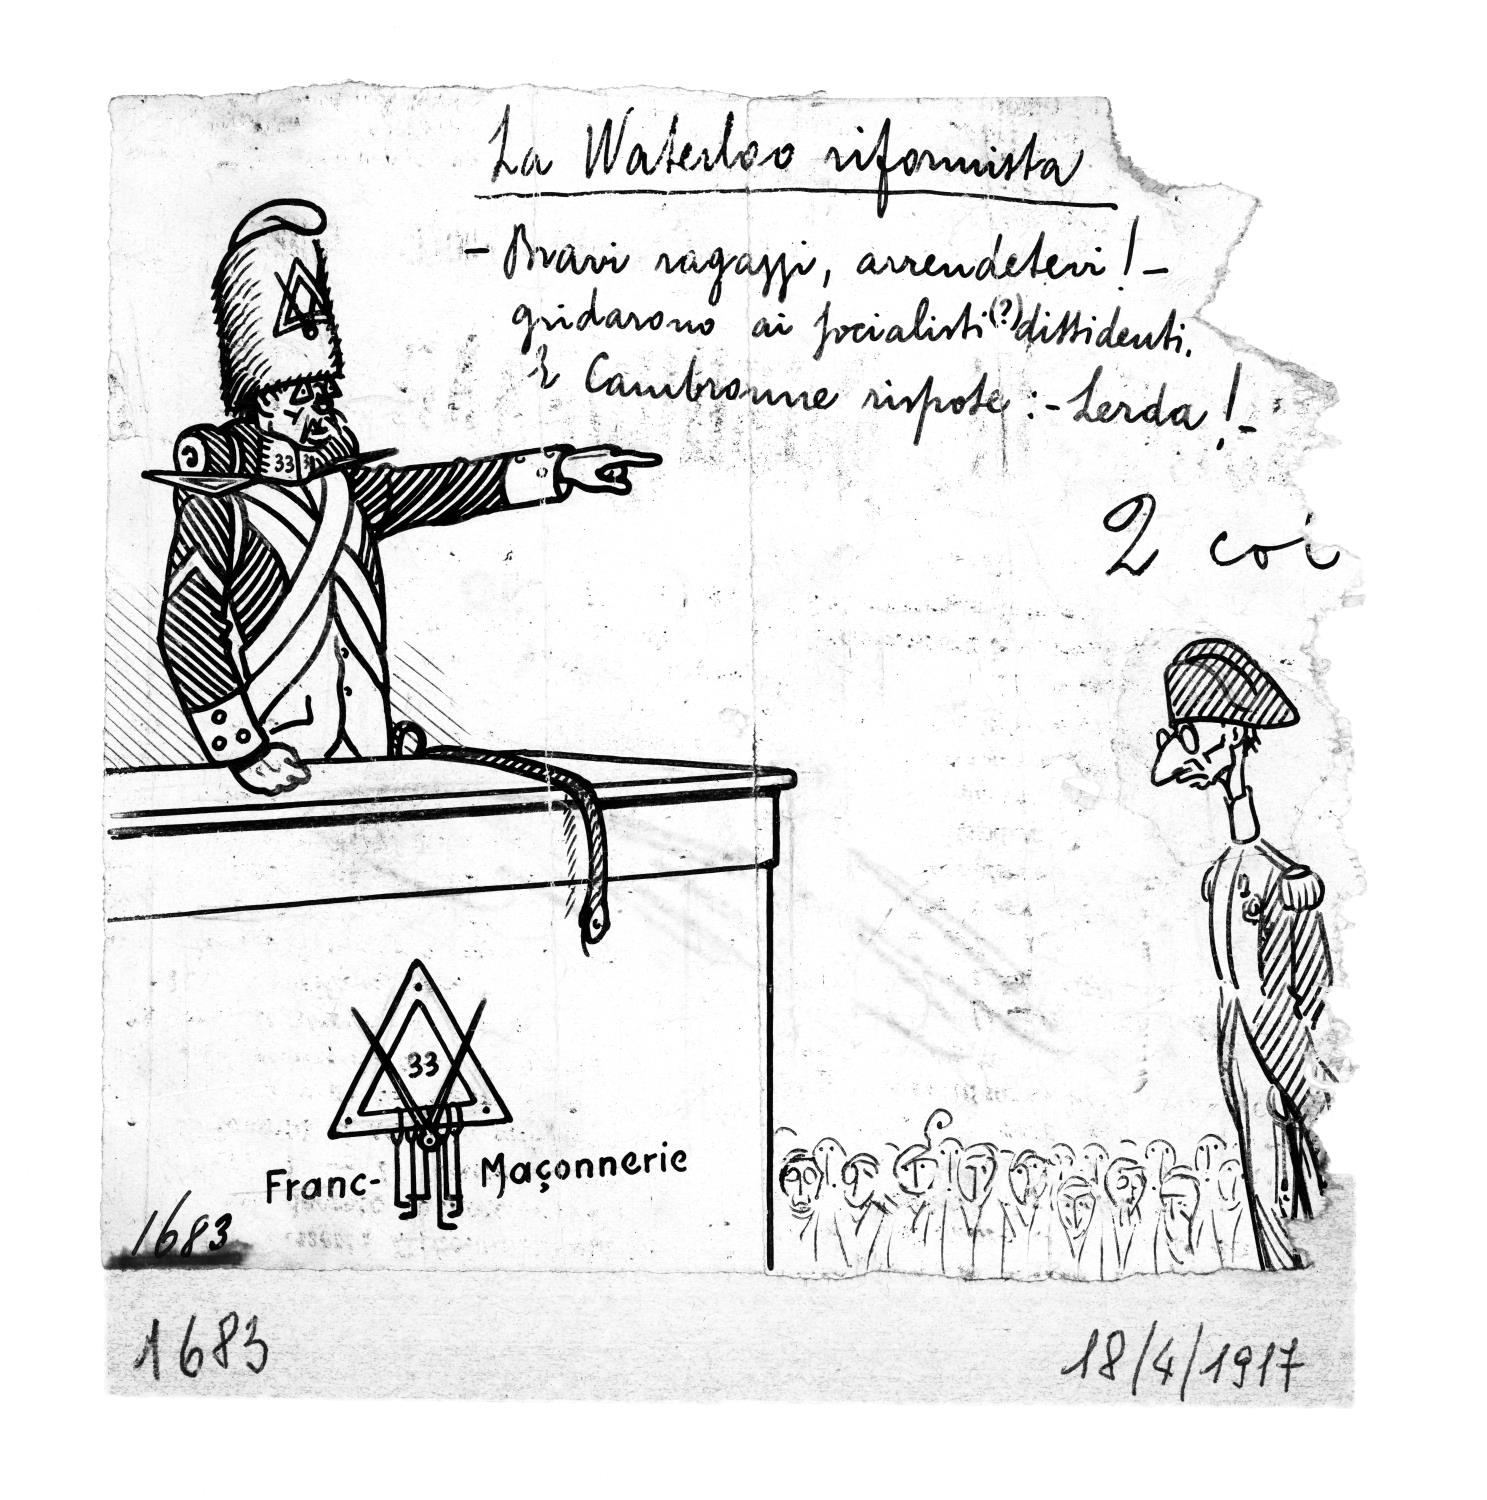 La Waterloo riformista
- Bravi ragazzi, arrendetevi! -
gridarono ai socialisti (?) dissidenti.
E Cambronne rispose: - Lerda! -
2 col
33
33
Franc- Maçonnerie
1683
1683
18/4/1917